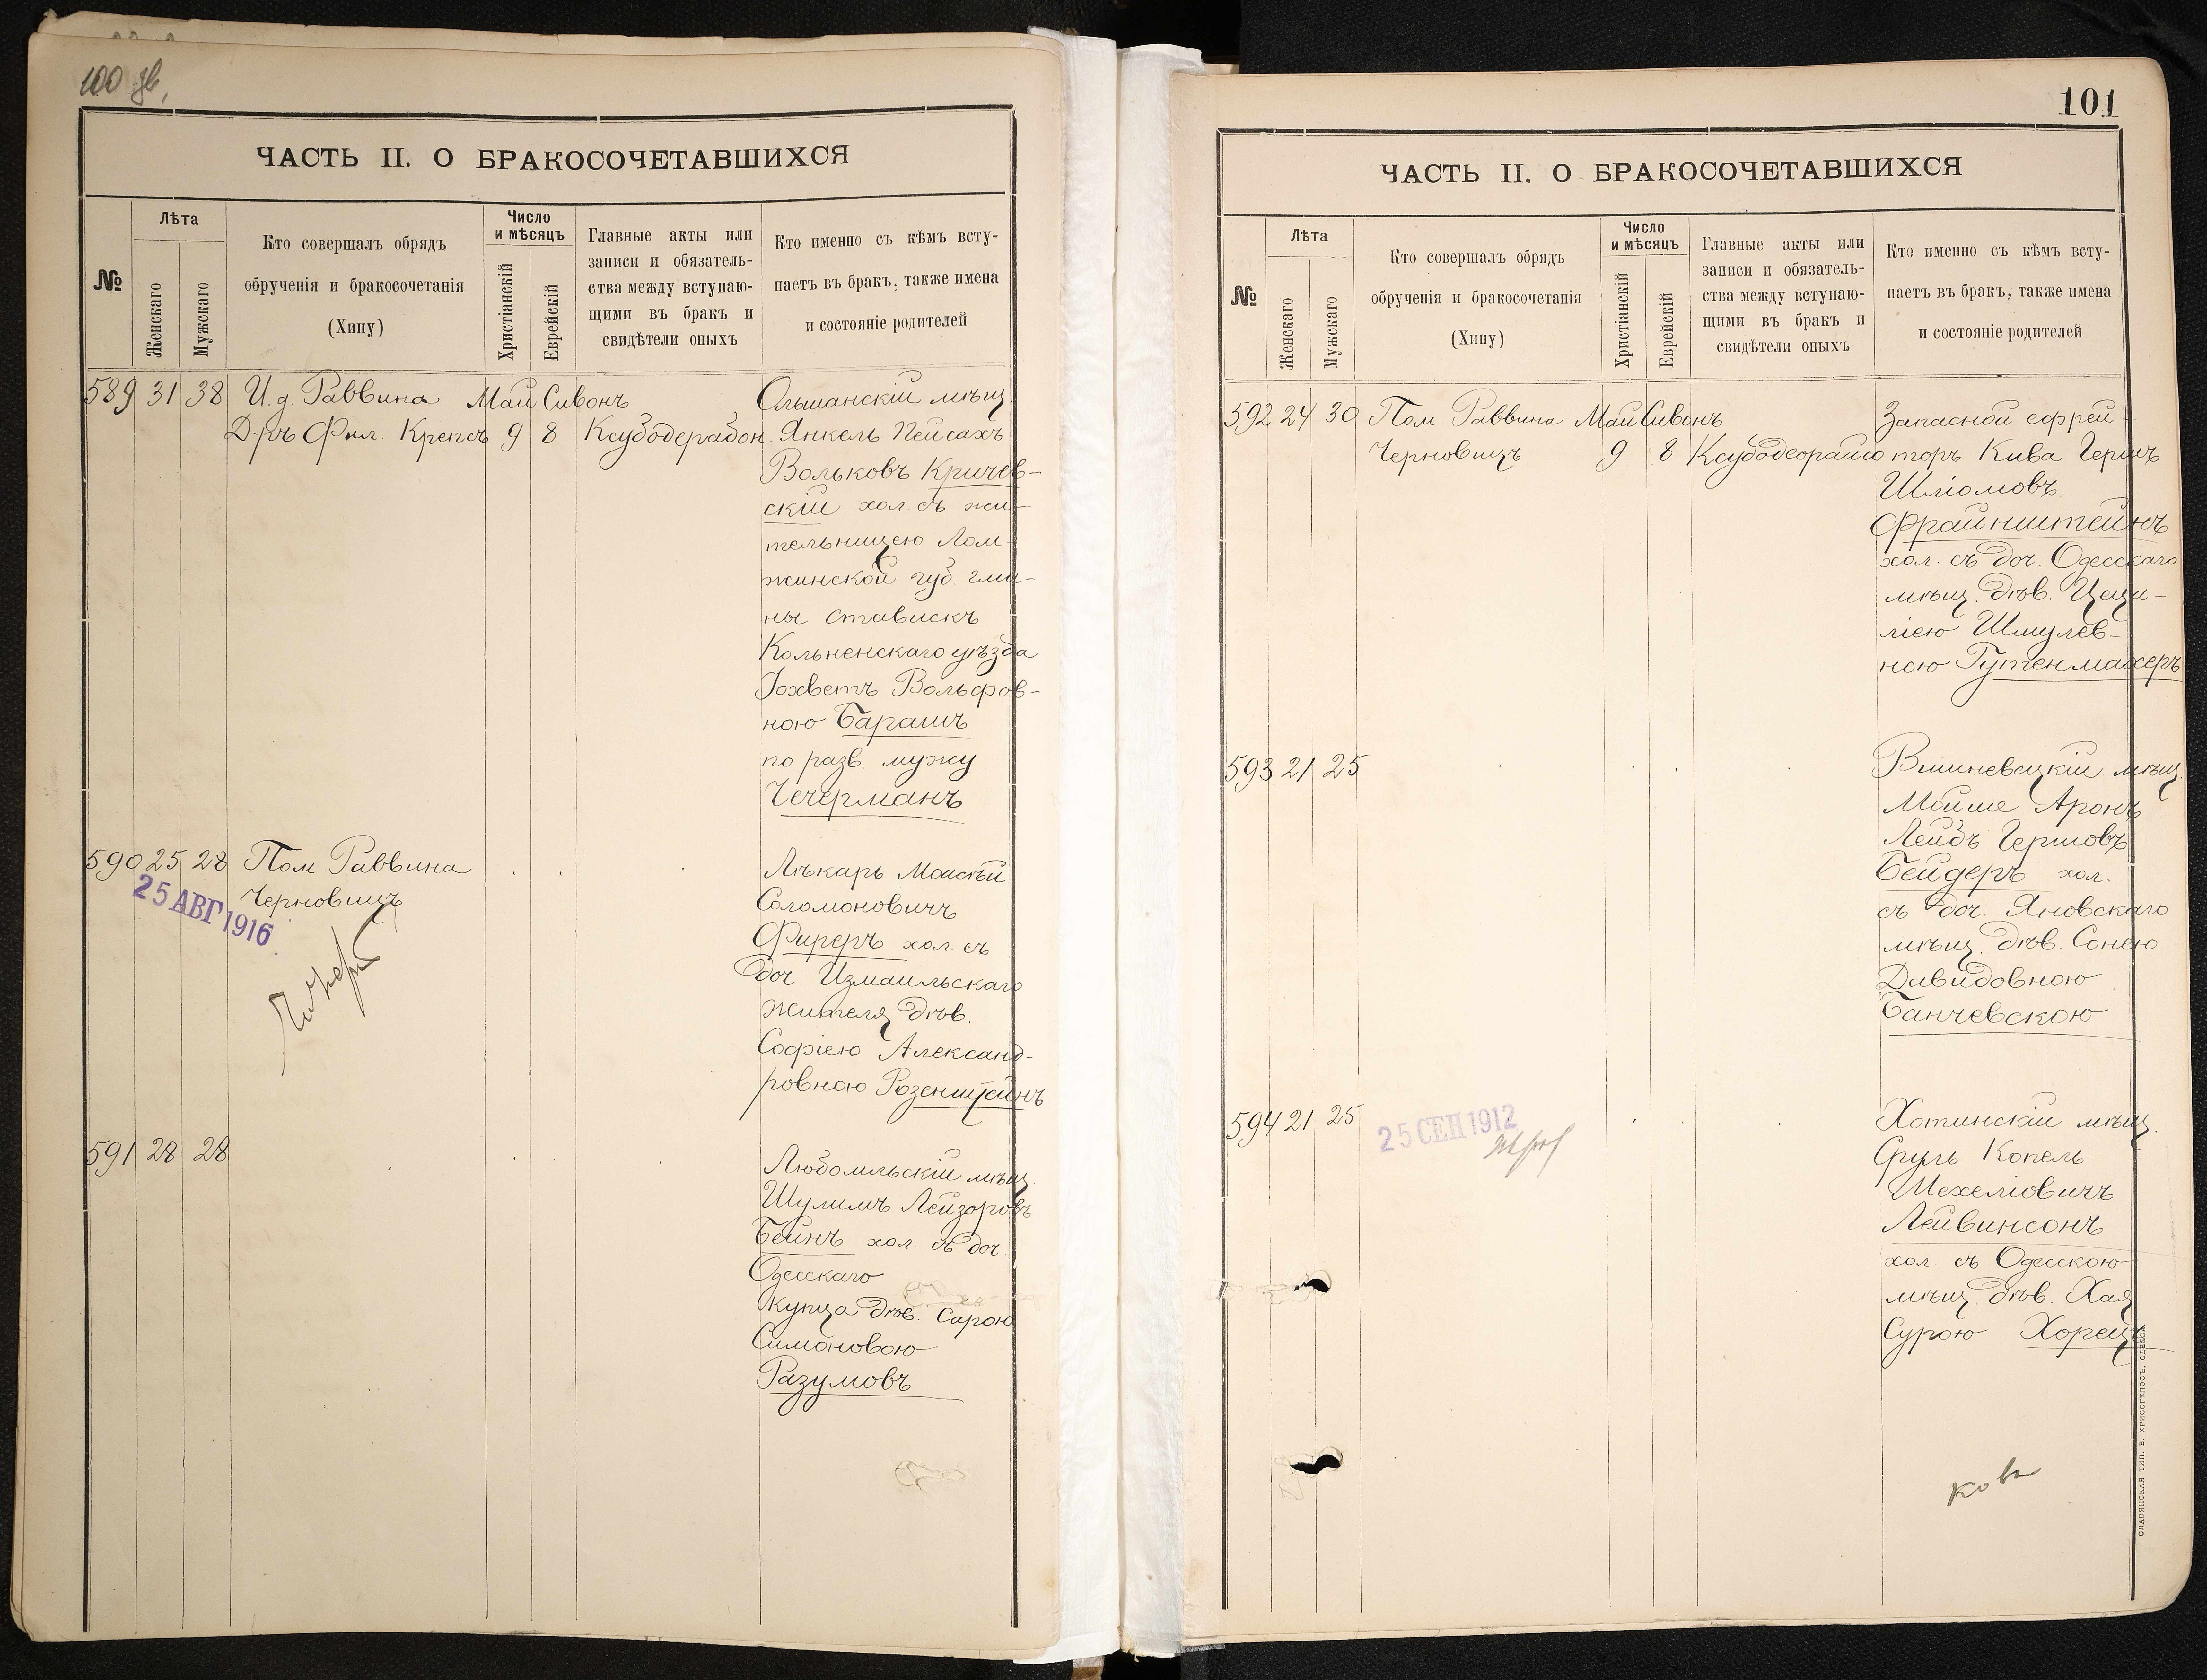 100 зв,
ЧАСТЬ II. О БРАКОСОЧЕТАВШИХСЯ
№
Лѣта
Женскаго
Мужскаго
Кто совершалъ обрядъ
обрученія и бракосочетанія
(Хипу)
Число
и мѣсяцъ
Христіанскій
Еврейскій
Главные акты или
записи и обязатель-
ства между вступаю-
щими въ бракъ и
свидѣтели оныхъ
Кто именно съ кѣмъ всту-
паетъ въ бракъ, также имена
и состояніе родителей
589 31 38 И. д. Раввина Май Сивонъ Ольшанскій мѣщ.
Д-ръ Фил. Крепсъ 9 8 Ксубодерабон. Янкель Пейсахъ
Вольковъ Кричев-
скій хол. съ жи-
тельницею Лом-
жинской губ. гми-
ны Ставискъ
Кольненскаго уѣзда
Іохветъ Вольфов-
ною Барашъ
по разв. мужу
Чечерманъ
590 25 28 Пом. Раввина Лѣкарь Моисѣй
Черновицъ Соломоновичъ
25 АВГ 1916
Фиреръ хол. съ
доч. Измаильскаго
жителя дѣв.
Софіею Александ-
ровною Розенштейнъ
591 28 28 Любомльскій мѣщ.
Шулимъ Лейзоровъ
Бейнъ хол. съ доч.
Одесскаго
купца дѣв. Сарою
Симоновою
Разумовъ
101
ЧАСТЬ II. О БРАКОСОЧЕТАВШИХСЯ
№
Лѣта
Женскаго
Мужскаго
Кто совершалъ обрядъ
обрученія и бракосочетанія
(Хипу)
Число
и мѣсяцъ
Христіанскій
Еврейскій
Главные акты или
записи и обязатель-
ства между вступаю-
щими въ бракъ и
свидѣтели оныхъ
Кто именно съ кѣмъ всту-
паетъ въ бракъ, также имена
и состояніе родителей
592 24 30 Пом. Раввина Май Сивонъ Запасной ефрей-
Черновицъ 9 8 Ксубодеорайсо торъ Кива Гершъ
Шліомовъ
Фрайнштейнъ
хол. съ доч. Одесскаго
мѣщ. дѣв. Цеци-
ліею Шмулев-
ною Гутенмахеръ
593 21 25 Вишневецкій мѣщ.
Мойше Аронъ
Лейбъ Гершовъ
Бейдеръ хол.
съ доч. Яновскаго
мѣщ. дѣв. Сонею
Давидовною
Банчевскою
594 21 25 Хотинскій мѣщ.
25 СЕН 1912
Сруль Копель
Мехеліовичъ
Лейвинсонъ
хол. съ Одесскою
мѣщ. дѣв. Хая
Сурою Хорецъ
СЛАВЯНСКАЯ ТИП. Е. ХРИСОГЕЛОСЪ, ОДЕССА